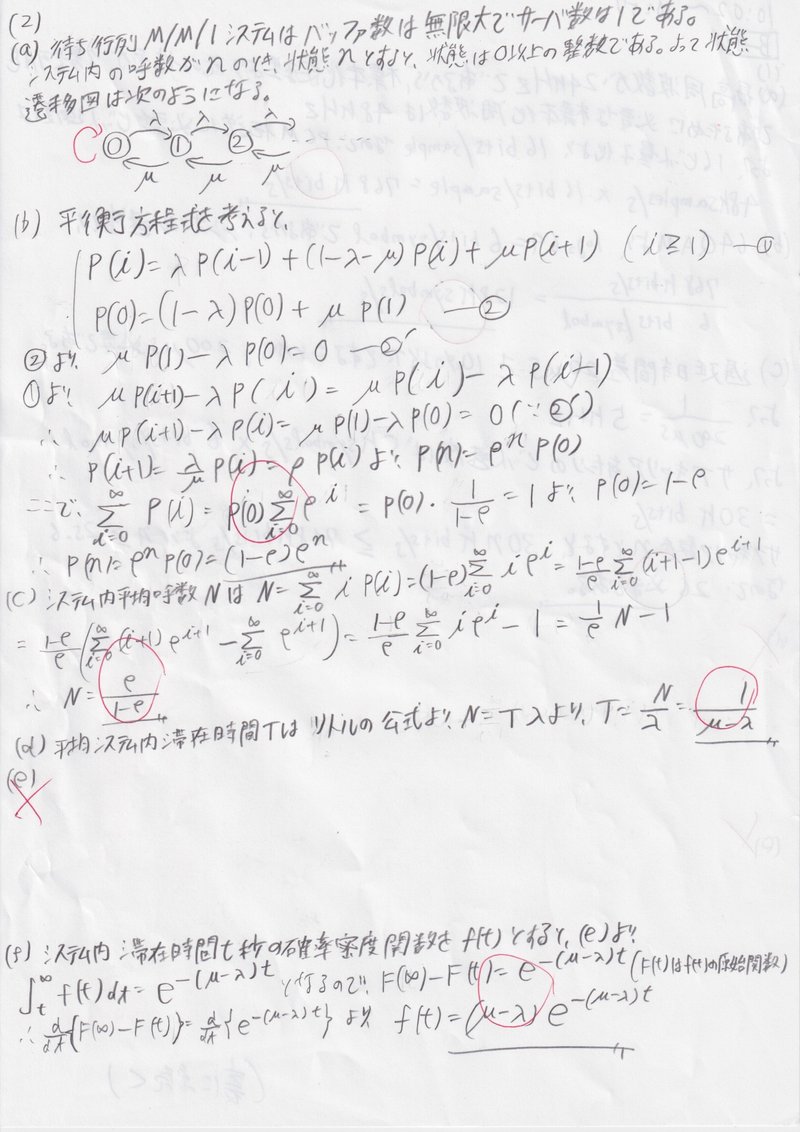 (2)
(a) 待ち行列 M/M/1 システムはバッファ数は無限大でサーバ数は1である。
システム内の呼数がnのとき、状態nとすると、状態は0以上の整数である。よって状態
遷移図は次のようになる。
λ λ λ
0 1 2 ------
μ μ μ
(b) 平衡方程式を考えると、
P(i) = λP(i-1) + (1-λ-μ)P(i) + μP(i+1) (i≧1) —①
P(0) = (1-λ)P(0) + μP(1) —②
②より、 μP(1) - λP(0) = 0 —②'
①より μP(i+1) - λP(i) = μP(i) - λP(i-1)
∴ μP(i+1) - λP(i) = μP(1) - λP(0) = 0 (∵②')
∴ P(i+1) = λ/μ P(i) = ρP(i) より、 P(n) = ρ^n P(0)
ここで、 Σ_{i=0}^{∞} P(i) = P(0) Σ_{i=0}^{∞} ρ^i = P(0)・1/(1-ρ) = 1 より P(0) = 1-ρ
∴ P(n) = ρ^n P(0) = (1-ρ)ρ^n
(c) システム内平均呼数Nは N = Σ_{i=0}^{∞} i P(i) = (1-ρ) Σ_{i=0}^{∞} i ρ^i = (1-ρ)/ρ Σ_{i=0}^{∞} (i+1-1) ρ^{i+1}
= (1-ρ)/ρ (Σ_{i=0}^{∞} (i+1) ρ^{i+1} - Σ_{i=0}^{∞} ρ^{i+1}) = (1-ρ)/ρ Σ_{i=0}^{∞} i ρ^i - 1 = 1/ρ N - 1
∴ N = ρ/(1-ρ)
(d) 平均システム内滞在時間Tは リトルの公式より、N = Tλより、T = N/λ = 1/(μ-λ)
(e)
(f) システム内滞在時間t秒の確率密度関数を f(t) とすると、(e)より、
∫_t^∞ f(t)dt = e^{-(μ-λ)t} となるので、 F(∞) - F(t) = e^{-(μ-λ)t} (F(t)はf(t)の原始関数)
∴ d/dt{F(∞) - F(t)} = d/dt{e^{-(μ-λ)t}} より f(t) = (μ-λ) e^{-(μ-λ)t}